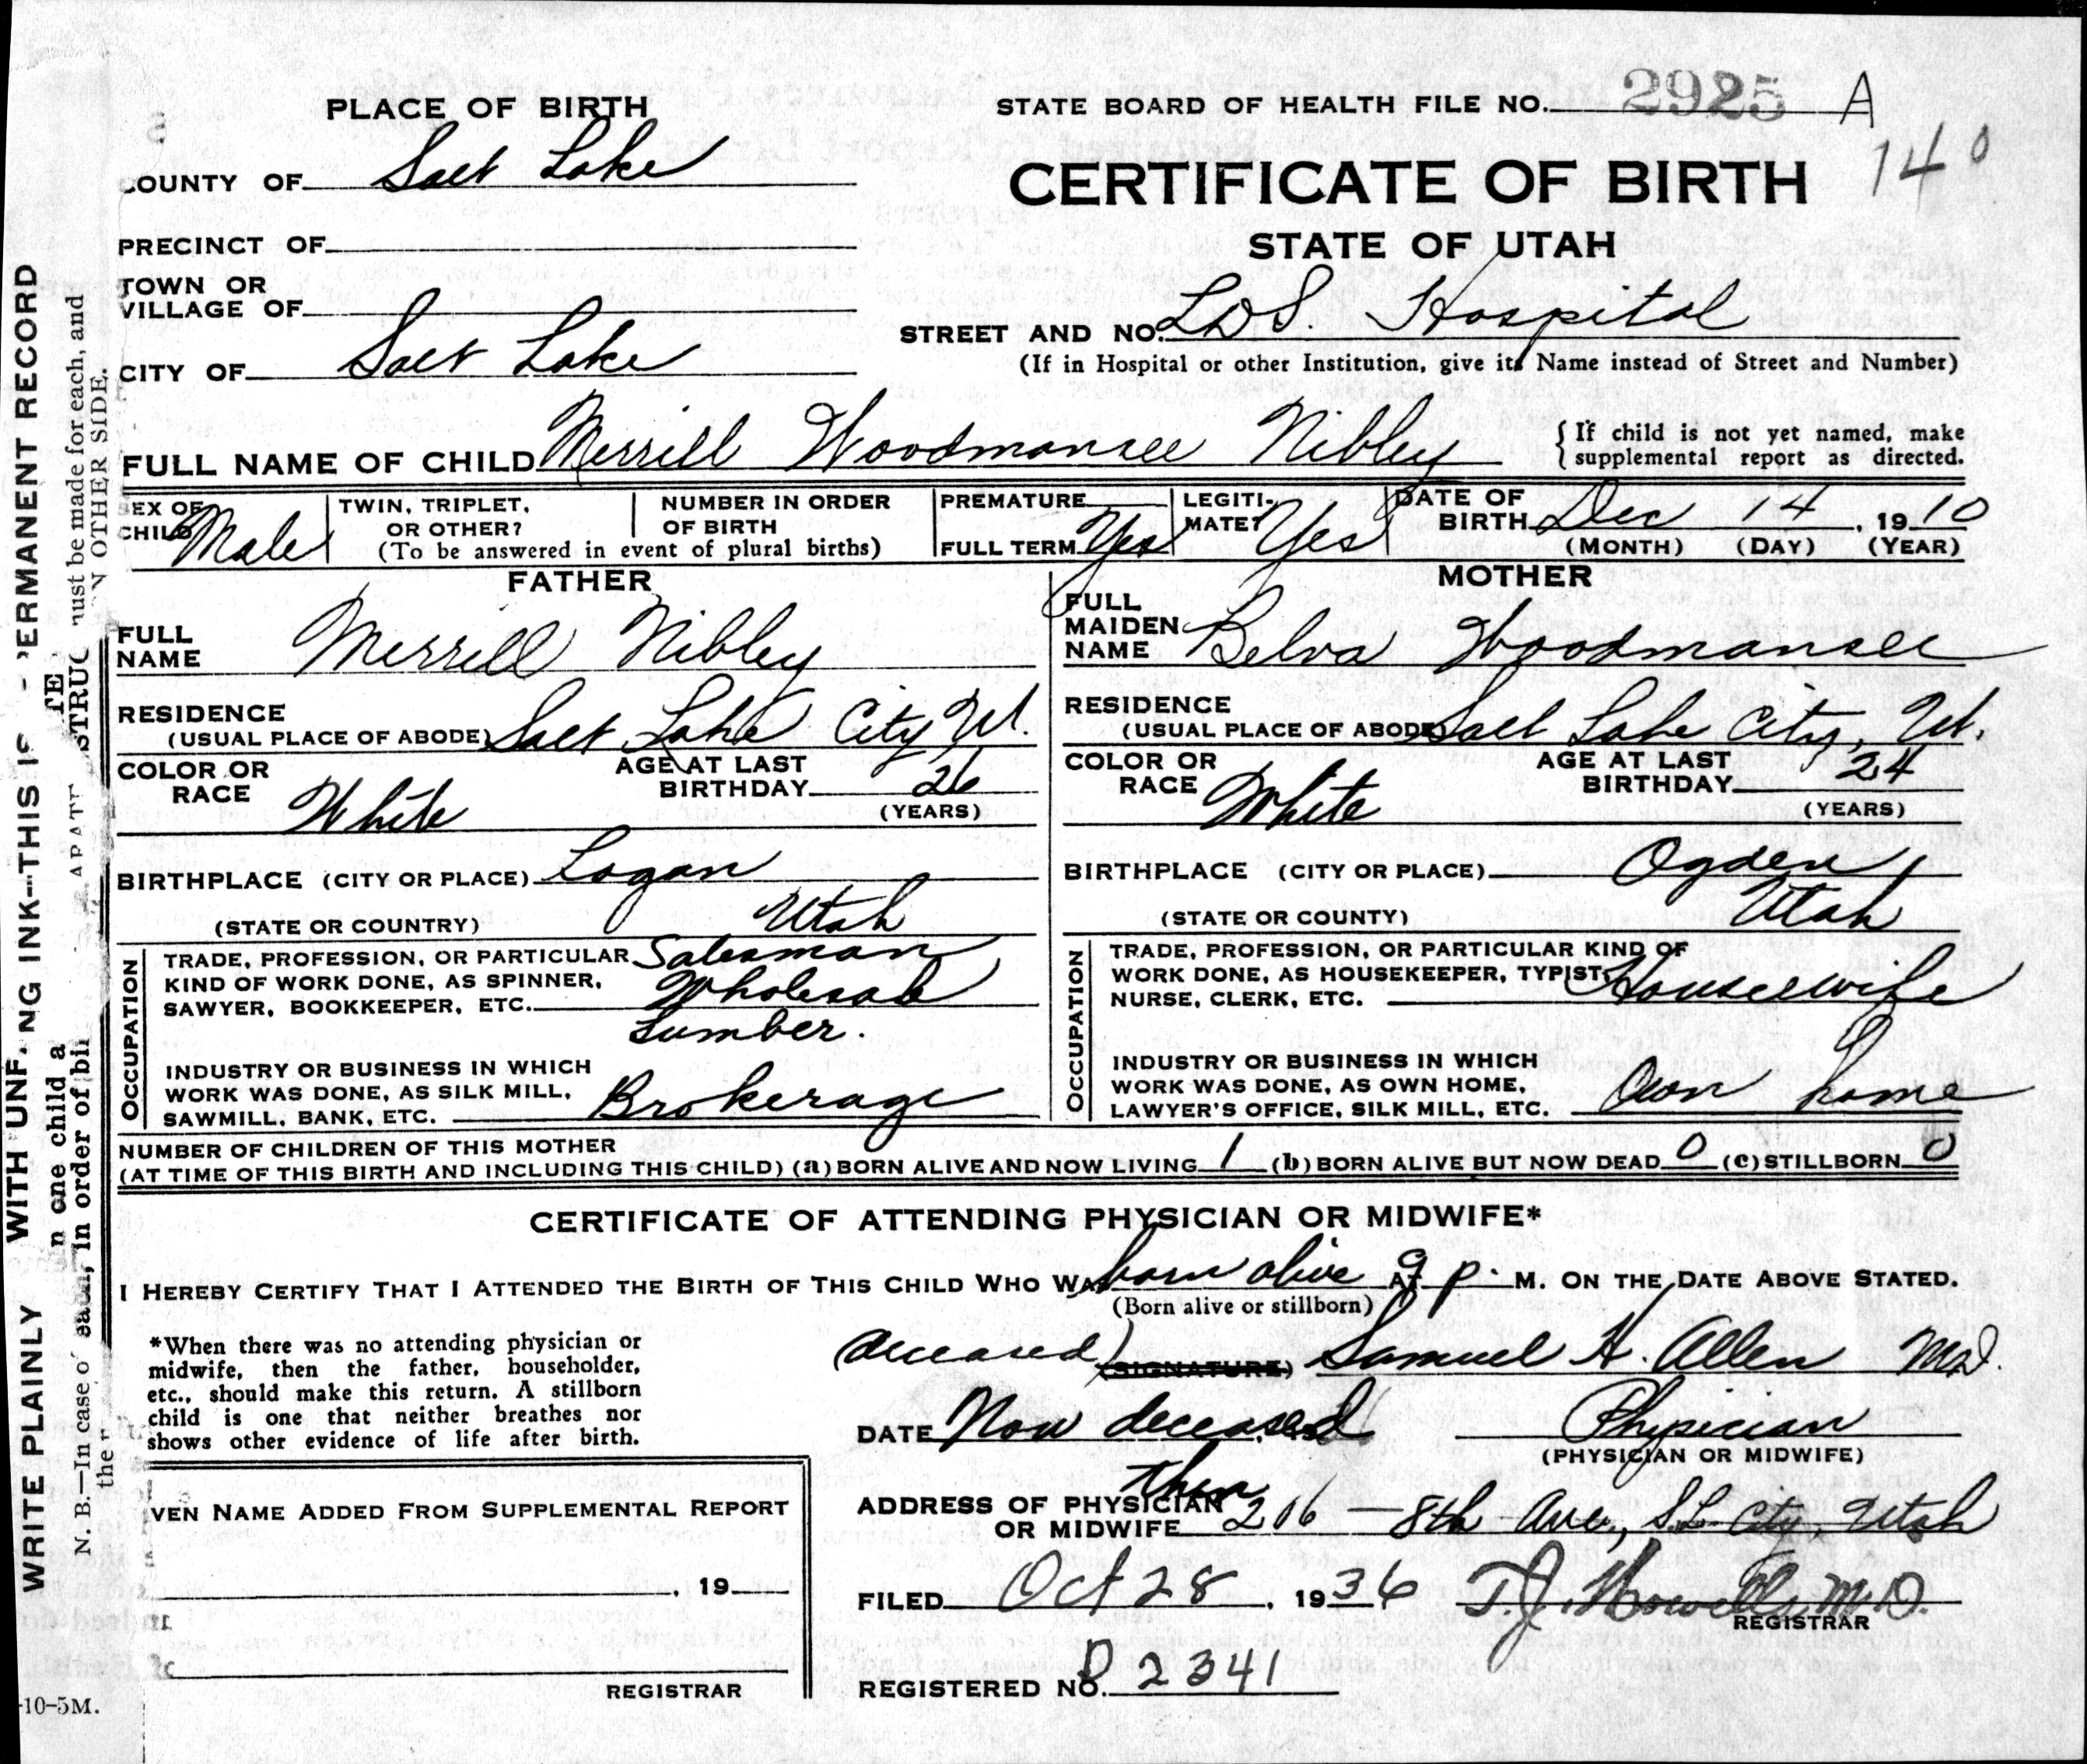 PLACE OF BIRTH
STATE BOARD OF HEALTH FILE NO. 2925 A
140
COUNTY OF Salt Lake
CERTIFICATE OF BIRTH
PRECINCT OF
STATE OF UTAH
TOWN OR
VILLAGE OF
STREET AND NO. LDS. Hospital
(If in Hospital or other Institution, give its Name instead of Street and Number)
CITY OF Salt Lake
FULL NAME OF CHILD Merrill Woodmansee Nibley
{If child is not yet named, make
supplemental report as directed.
SEX OF CHILD Male
TWIN, TRIPLET, OR OTHER?
NUMBER IN ORDER OF BIRTH
(To be answered in event of plural births)
PREMATURE
FULL TERM Yes
LEGITIMATE? Yes
DATE OF BIRTH Dec 14, 1910
(MONTH) (DAY) (YEAR)
FATHER
FULL NAME Merrill Nibley
RESIDENCE
(USUAL PLACE OF ABODE) Salt Lake City, Ut.
COLOR OR RACE White
AGE AT LAST BIRTHDAY 26
(YEARS)
BIRTHPLACE (CITY OR PLACE) Logan
(STATE OR COUNTRY) Utah
OCCUPATION
TRADE, PROFESSION, OR PARTICULAR Salesman
KIND OF WORK DONE, AS SPINNER, Wholesale
SAWYER, BOOKKEEPER, ETC.
Lumber.
INDUSTRY OR BUSINESS IN WHICH
WORK WAS DONE, AS SILK MILL, Brokerage
SAWMILL, BANK, ETC.
MOTHER
FULL MAIDEN NAME Belva Woodmansee
RESIDENCE
(USUAL PLACE OF ABODE) Salt Lake City, Ut.
COLOR OR RACE White
AGE AT LAST BIRTHDAY 24
(YEARS)
BIRTHPLACE (CITY OR PLACE) Ogden,
(STATE OR COUNTY) Utah
OCCUPATION
TRADE, PROFESSION, OR PARTICULAR KIND OF
WORK DONE, AS HOUSEKEEPER, TYPIST, Housewife
NURSE, CLERK, ETC.
INDUSTRY OR BUSINESS IN WHICH
WORK WAS DONE, AS OWN HOME, Own home
LAWYER'S OFFICE, SILK MILL, ETC.
NUMBER OF CHILDREN OF THIS MOTHER
(AT TIME OF THIS BIRTH AND INCLUDING THIS CHILD) (a) BORN ALIVE AND NOW LIVING 1 (b) BORN ALIVE BUT NOW DEAD 0 (c) STILLBORN 0
CERTIFICATE OF ATTENDING PHYSICIAN OR MIDWIFE*
I HEREBY CERTIFY THAT I ATTENDED THE BIRTH OF THIS CHILD WHO WAS born alive AT 9 p. M. ON THE DATE ABOVE STATED.
(Born alive or stillborn)
*When there was no attending physician or
midwife, then the father, householder,
etc., should make this return. A stillborn
child is one that neither breathes nor
shows other evidence of life after birth.
(deceased) (SIGNATURE) Samuel H. Allen MD.
DATE Now deceased
Physician
(PHYSICIAN OR MIDWIFE)
then
ADDRESS OF PHYSICIAN
OR MIDWIFE 206 - 8th Ave., S.L. City, Utah
VEN NAME ADDED FROM SUPPLEMENTAL REPORT
, 19
REGISTRAR
FILED Oct 28, 1936 T.J. Howells, M.D.
REGISTRAR
REGISTERED NO. D 2341
-10-5M.
WRITE PLAINLY WITH UNF NG INK--THIS IS ERMANENT RECORD
N. B.--In case o n one child a TE must be made for each, and
the in order of bi STRUC N OTHER SIDE.